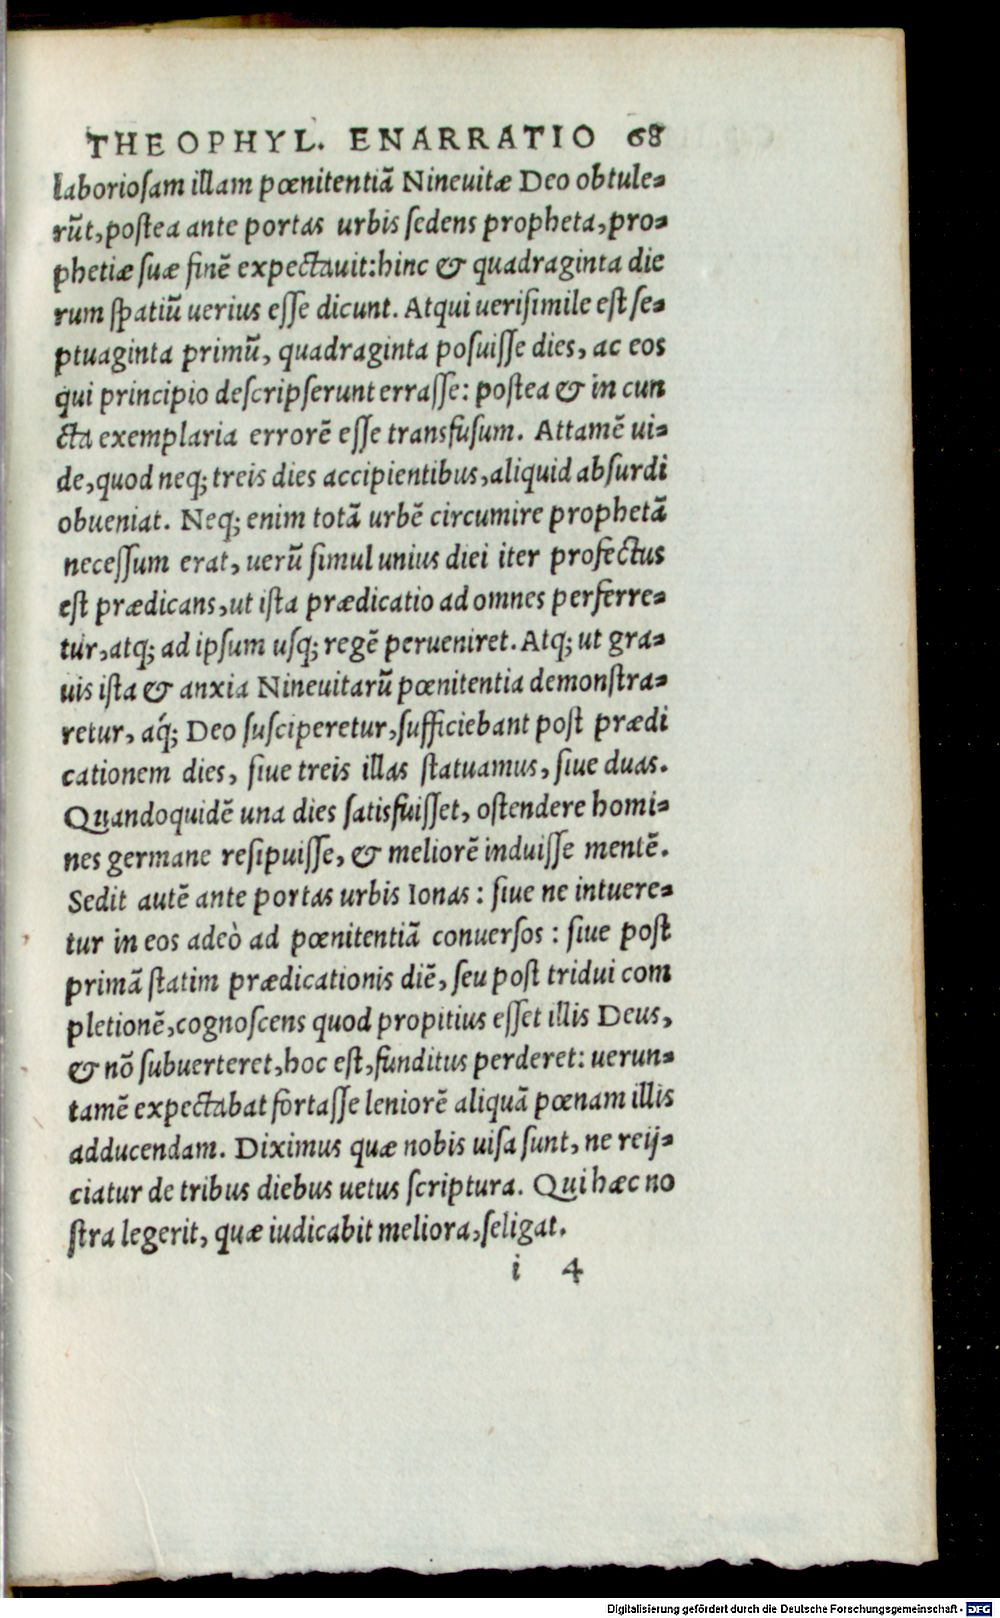 THEOPHYL. ENARRATIO 68
laborioſam illam pœnitentiã Nineuitæ Deo obtule-
rũt, poſtea ante portas urbis ſedens propheta, pro-
phetiæ ſuæ finẽ expectauit: hinc & quadraginta die
rum ſpatiũ uerius eſſe dicunt. Atqui ueriſimile eſt ſe-
ptuaginta primũ, quadraginta poſuiſſe dies, ac eos
qui principio deſcripſerunt erraſſe: poſtea & in cun
cta exemplaria errorẽ eſſe transfuſum. Attamẽ ui-
de, quod neq; treis dies accipientibus, aliquid abſurdi
obueniat. Neq; enim totã urbẽ circumire prophetã
neceſſum erat, uerũ ſimul unius diei iter profectus
eſt prædicans, ut iſta prædicatio ad omnes perferre-
tur, atq; ad ipſum uſq; regẽ perueniret. Atq; ut gra-
uis iſta & anxia Nineuitarũ pœnitentia demonſtra-
retur, aq́; Deo ſuſciperetur, ſufficiebant poſt prædi
cationem dies, ſiue treis illas ſtatuamus, ſiue duas.
Quandoquidẽ una dies ſatisfuiſſet, oſtendere homi-
nes germane reſipuiſſe, & meliorẽ induiſſe mentẽ.
Sedit autẽ ante portas urbis Ionas: ſiue ne intuere-
tur in eos adeò ad pœnitentiã conuerſos: ſiue poſt
primã ſtatim prædicationis diẽ, ſeu poſt tridui com
pletionẽ, cognoſcens quod propitius eſſet illis Deus,
& nõ ſubuerteret, hoc eſt, funditus perderet: uerun-
tamẽ expectabat fortaſſe leniorẽ aliquã pœnam illis
adducendam. Diximus quæ nobis uiſa ſunt, ne reij-
ciatur de tribus diebus uetus ſcriptura. Qui hæc no
ſtra legerit, quæ iudicabit meliora, ſeligat.
i 4
Digitalisierung gefördert durch die Deutsche Forschungsgemeinschaft - DFG